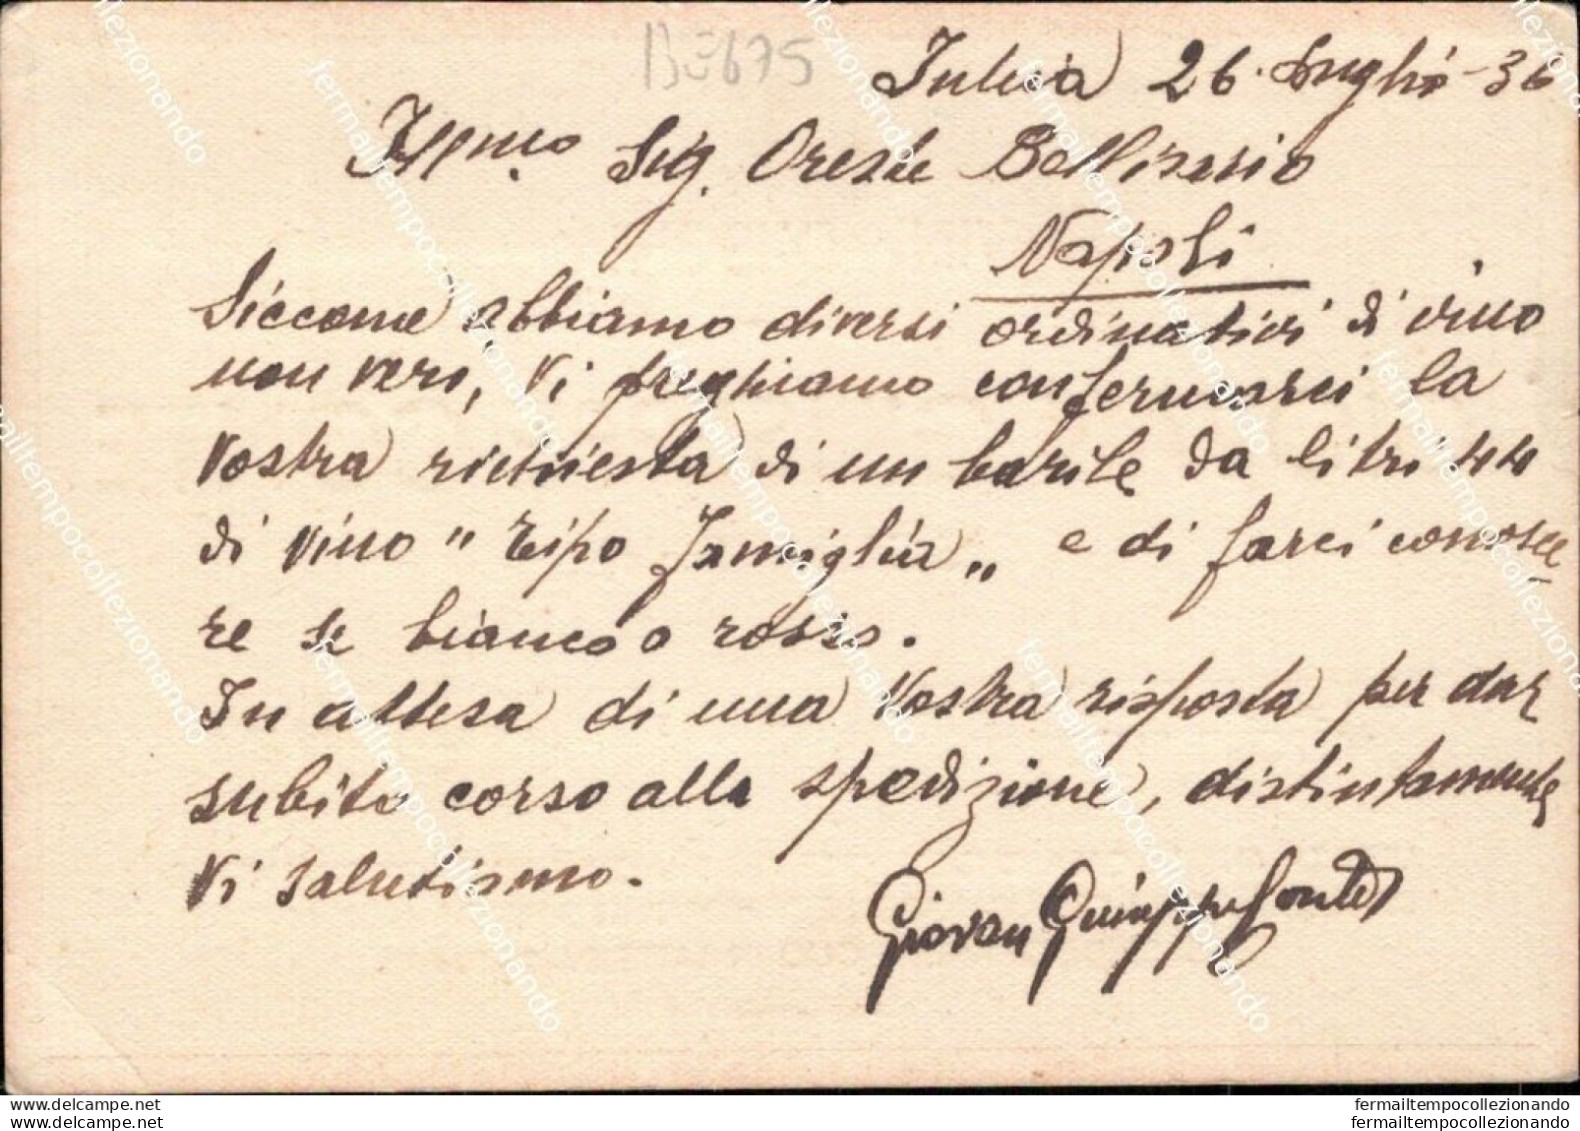 Bu675
26 Luglio - 36
Ill/mo. Sig. Oreste Bellisario
Napoli
Siccome abbiamo diversi ordinativi di vino
non veri, Vi preghiamo confermarci la
Vostra richiesta di un barile da litri 44
di vino " tipo famiglia „ e di farci conosce
re se bianco o rosso.
In attesa di una Vostra risposta per dar
subito corso alla spedizione, distintamente
Vi salutiamo.
Giovan Conte
www.delcampe.net
www.delcampe.net
fermailtempocollezionando
fermailtempocollezionando